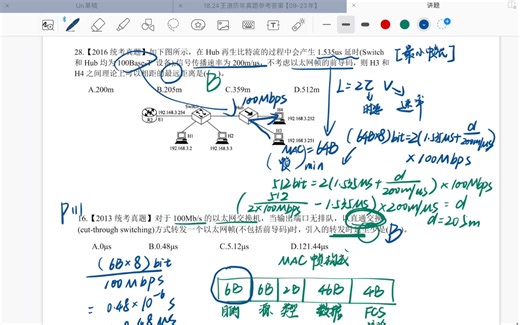 18.24 王道历年真题参考答案【09-23年】
讲题
28.【2016 统考真题】如下图所示，在 Hub 再生比特流的过程中会产生 1.535us 延时(Switch
和 Hub 均为 100Base-T 设备),信号传播速率为 200m/us，不考虑以太网帧的前导码，则 H3 和
H4 之间理论上可以相距的最远距离是( )。
B
A.200m B.205m C.359m D.512m
L=2τ V
100Mbps
Switch
Hub
H4
192.168.3.252
R
192.168.3.254
H3
192.168.3.251
H1
192.168.3.2
H2
192.168.3.3
MAC = 64B
(帧) min
(64B×8)bit=2(1.535μs+d/200m/μs)
×100Mbps
512bit=2(1.535μs+d/200m/μs)×100Mbps
(512/2×100Mbps - 1.535μs)×200m/μs=d
d=205m
P111
16.【2013 统考真题】对于 100Mb/s 的以太网交换机，当输出端口无排队，以直通交换
(cut-through switching)方式转发一个以太网帧(不包括前导码)时，引入的转发时延至少是( )。
B
A.0μs B.0.48μs C.5.12μs D.121.44μs
(6B×8)bit
100Mbps
=0.48×10⁻⁶s
MAC 帧格式
6B 6B 2B 46B 4B
目的 源 类型 数据 FCS